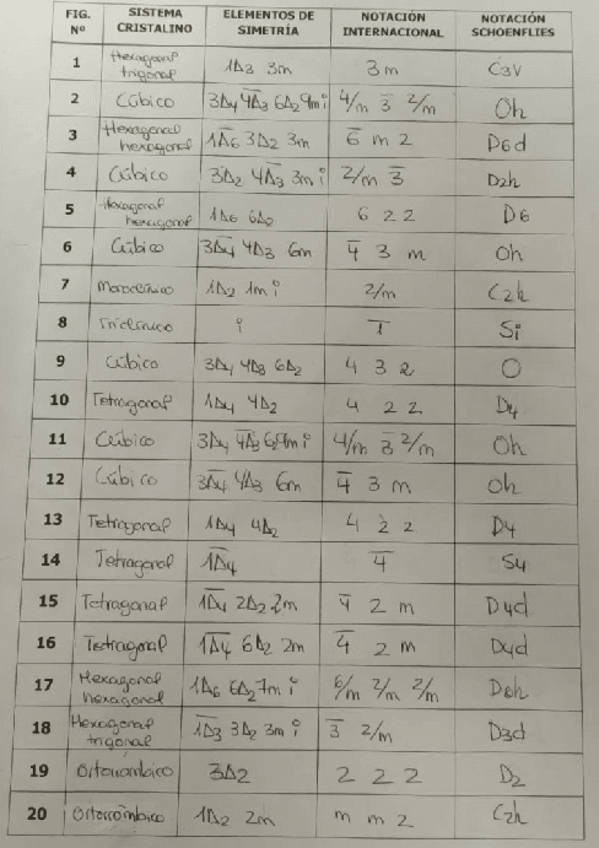 FIG. Nº SISTEMA CRISTALINO ELEMENTOS DE SIMETRÍA NOTACIÓN INTERNACIONAL NOTACIÓN SCHOENFLIES
1 Hexagonal trigonal 1Δ3 3m 3 m C3V
2 Cúbico 3Δ4 4Δ̅3 6Δ2 9m i 4/m 3̅ 2/m Oh
3 Hexagonal hexagonal 1Δ̅6 3Δ2 3m 6̅ m 2 D6d
4 Cúbico 3Δ2 4Δ̅3 3m i 2/m 3̅ D2h
5 Hexagonal hexagonal 1Δ6 6Δ2 6 2 2 D6
6 Cúbico 3Δ̅4 4Δ3 6m 4̅ 3 m Oh
7 Monoclínico 1Δ2 1m i 2/m C2h
8 Triclínico i 1̅ Si
9 Cúbico 3Δ4 4Δ3 6Δ2 4 3 2 O
10 Tetragonal 1Δ4 4Δ2 4 2 2 D4
11 Cúbico 3Δ4 4Δ̅3 6 9m i 4/m 3̅ 2/m Oh
12 Cúbico 3Δ̅4 4Δ3 6m 4̅ 3 m Oh
13 Tetragonal 1Δ4 4Δ2 4 2 2 D4
14 Tetragonal 1Δ̅4 4̅ S4
15 Tetragonal 1Δ̅4 2Δ2 2m 4̅ 2 m D4d
16 Tetragonal 1Δ̅4 6Δ2 2m 4̅ 2 m D4d
17 Hexagonal hexagonal 1Δ6 6Δ2 7m i 6/m 2/m 2/m D6h
18 Hexagonal trigonal 1Δ̅3 3Δ2 3m i 3̅ 2/m D3d
19 Ortorrómbico 3Δ2 2 2 2 D2
20 Ortorrómbico 1Δ2 2m m m 2 C2h